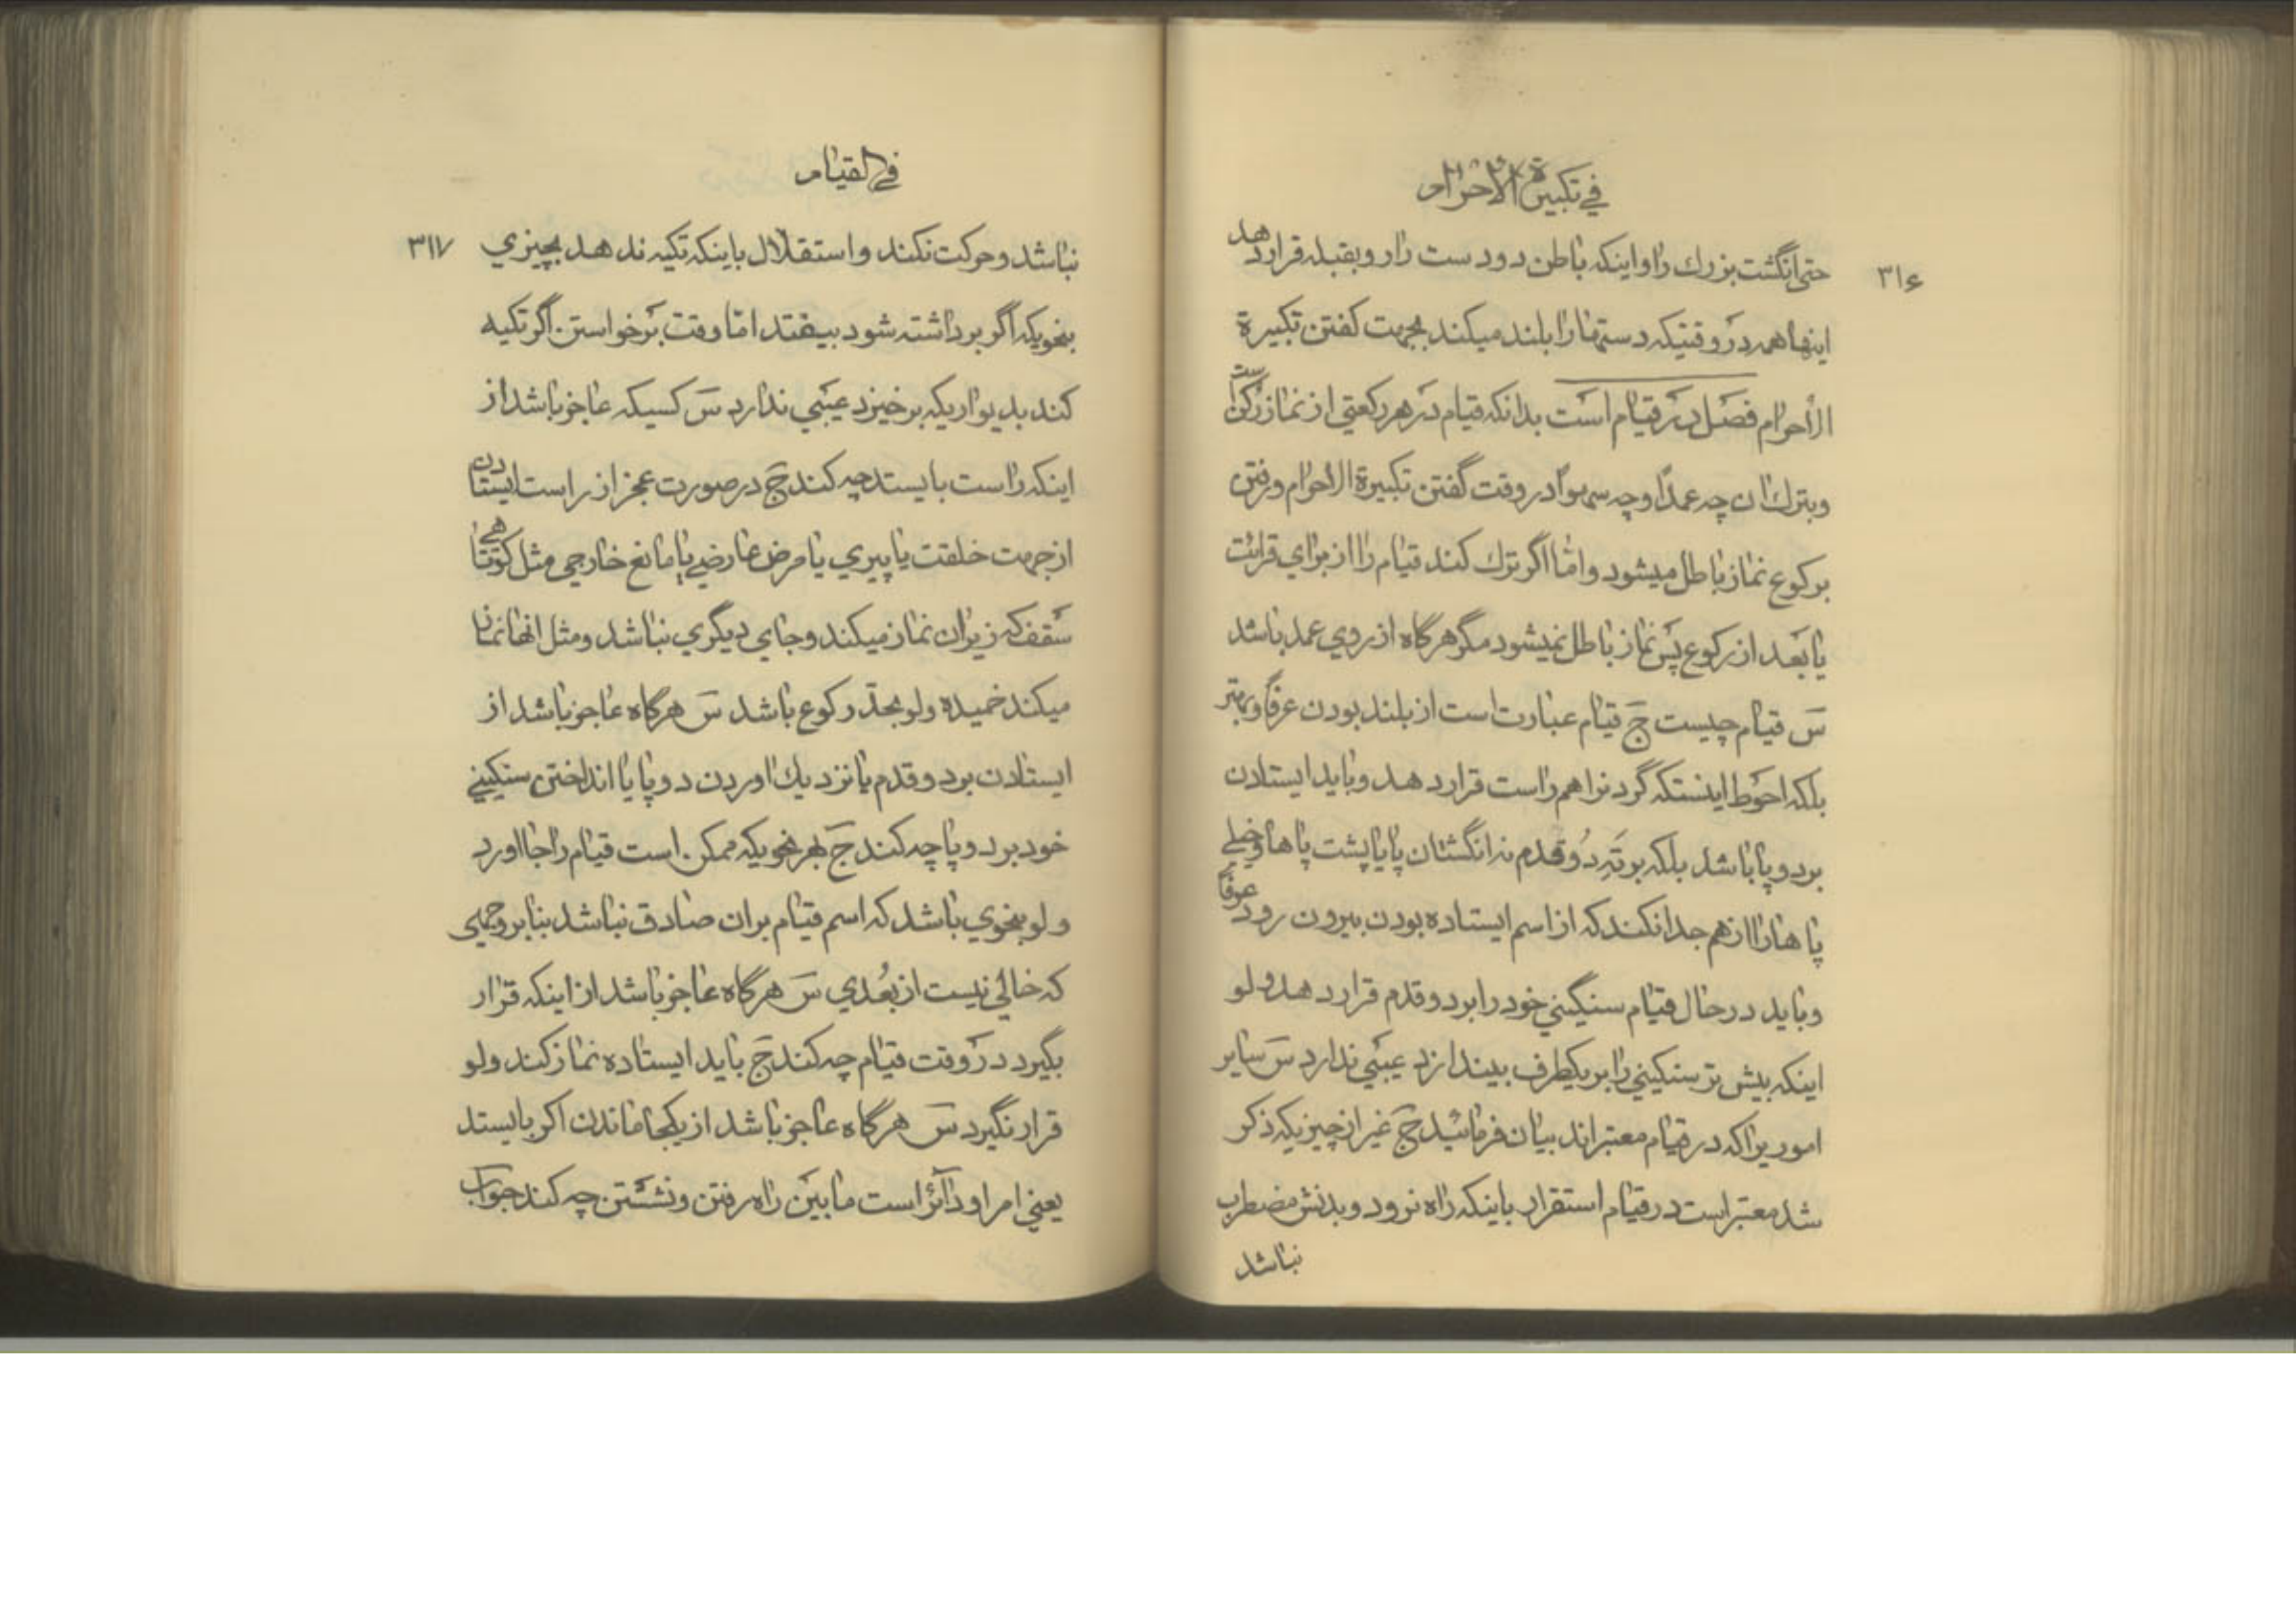 في تكبيرة الاحرام
٣١۶
حتی انگشت بزرك را و اینکه باطن دو دست را رو بقبله قرار دهد
اینها همه در وقتیکه دستها را بلند میکند بجهت کفتن تکبیرة
الاحرام فصل در قیام است بدانکه قیام در هر رکعتی از نماز رکن است
و بترك ان چه عمدًا و چه سهوًا در وقت گفتن تکبیرة الاحرام و رفتن
برکوع نماز باطل میشود و امّا اگر ترك کند قیام را از برای قرائت
یا بعد از رکوع پس نماز باطل نمیشود مگر هرگاه از روي عمد باشد
س قیام چیست ج قیام عبارت است از بلند بودن عرفًا و بهتر
بلکه احوط اینستکه گردنرا هم راست قرار دهد و باید ایستادن
بر دو پا باشد بلکه بر ته دو قدم نه انگشتان پا یا پشت پاها و خیلی
پاها را از هم جدا نکند که از اسم ایستاده بودن بیرون رود عرفًا
و باید در حال قیام سنیگني خود را بر دو قدم قرار دهد و لو
اینکه بیش تر سنکیني را بر یکطرف بیندازد عیبي ندارد س سایر
اموریرا که در قیام معتبر اند بیان فرمائید ج غیر از چیزیکه ذکر
شد معتبر است در قیام استقرار باینکه راه نرود و بدنش مضطرب
نباشد
في القیام
٣١٧
نباشد و حرکت نکند و استقلال باینکه تکیه ندهد بچیزي
بنحویکه اگر برداشته شود بیفتد امّا وقت برخواستن اگر تکیه
کند بدیواریکه برخیزد عیبي ندارد س کسیکه عاجز باشد از
اینکه راست بایستد چه کند ج در صورت عجز از راست ایستادن
از جهت خلقت یا پیري یا مرض عارضي یا مانع خارجی مثل کوتاهی
سقف که زیر ان نماز میکند و جاي دیگري نباشد و مثل انها نماز
میکند خمیده و لو بحدّ رکوع باشد س هرگاه عاجز باشد از
ایستادن بر دو قدم یا نزدیك اوردن دو پا یا انداختن سنکیني
خود بر دو پا چه کند ج بهر نحویکه ممکن است قیام را بجا اورد
و لو بنحوي باشد که اسم قیام بران صادق نباشد بنا بر وجهی
که خالي نیست از بُعدي س هرگاه عاجز باشد از اینکه قرار
بگیرد در وقت قیام چه کند ج باید ایستاده نماز کند و لو
قرار نگیرد س هرگاه عاجز باشد از یکجا ماندن اکر بایستد
یعني امر او دائر است ما بین راه رفتن و نشستن چه کند جواب